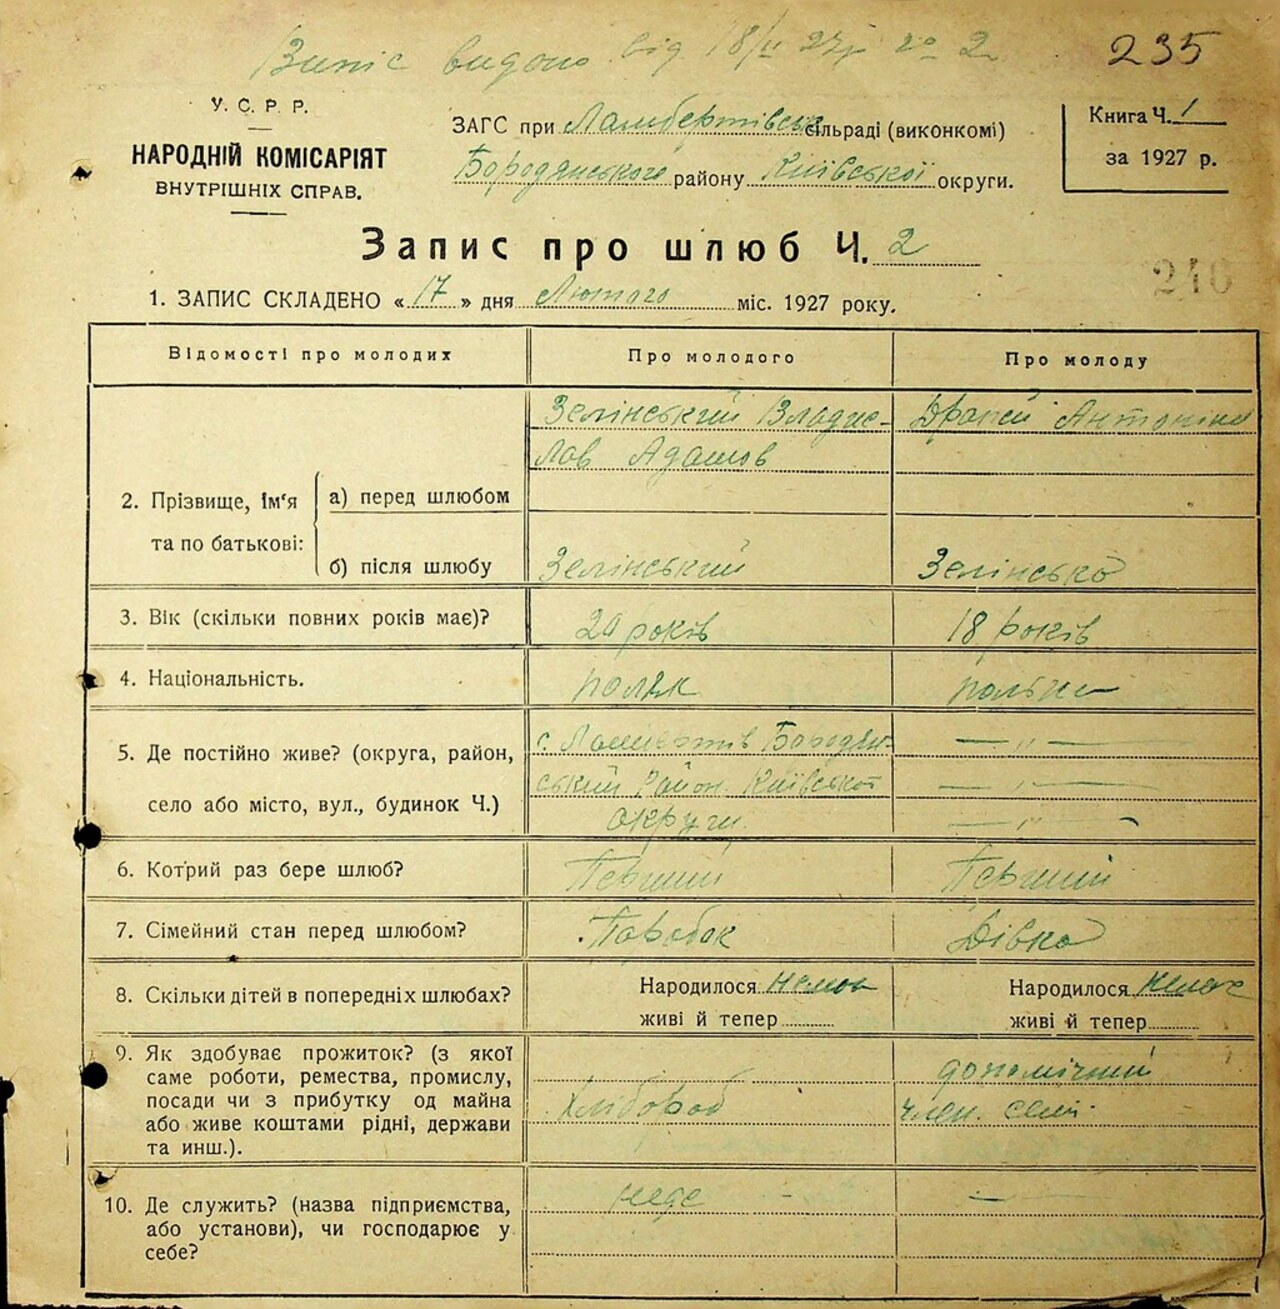 Випіс видано від 18/II 27р за 2
235
У. С. Р. Р.
НАРОДНІЙ КОМІСАРІЯТ
ВНУТРІШНІХ СПРАВ.
ЗАГС при Ламбертівськ сільраді (виконкомі)
Бородянського району Київської округи.
Книга Ч. 1
за 1927 р.
Запис про шлюб Ч. 2
240
1. ЗАПИС СКЛАДЕНО « 17 » дня Лютого міс. 1927 року.
Відомості про молодих
Про молодого
Про молоду
2. Прізвище, ім'я
та по батькові:
а) перед шлюбом
Зелінський Владис-
лав Адамов
Антоніна
б) після шлюбу
Зелінський
Зелінська
3. Вік (скільки повних років має)?
20 років
18 років
4. Національність.
поляк
полька
5. Де постійно живе? (округа, район,
село або місто, вул., будинок Ч.)
с. Ламбертів Бородян-
ський район Київської
округи
— „ —
— „ —
— „ —
6. Котрий раз бере шлюб?
Перший
Перший
7. Сімейний стан перед шлюбом?
Паробок
Дівка
8. Скільки дітей в попередніх шлюбах?
Народилося немає
живі й тепер
Народилося немає
живі й тепер
9. Як здобуває прожиток? (з якої
саме роботи, ремества, промислу,
посади чи з прибутку од майна
або живе коштами рідні, держави
та инш.).
Хлібороб
допомічний
член. семї
10. Де служить? (назва підприємства,
або установи), чи господарює у
себе?
неде -
—